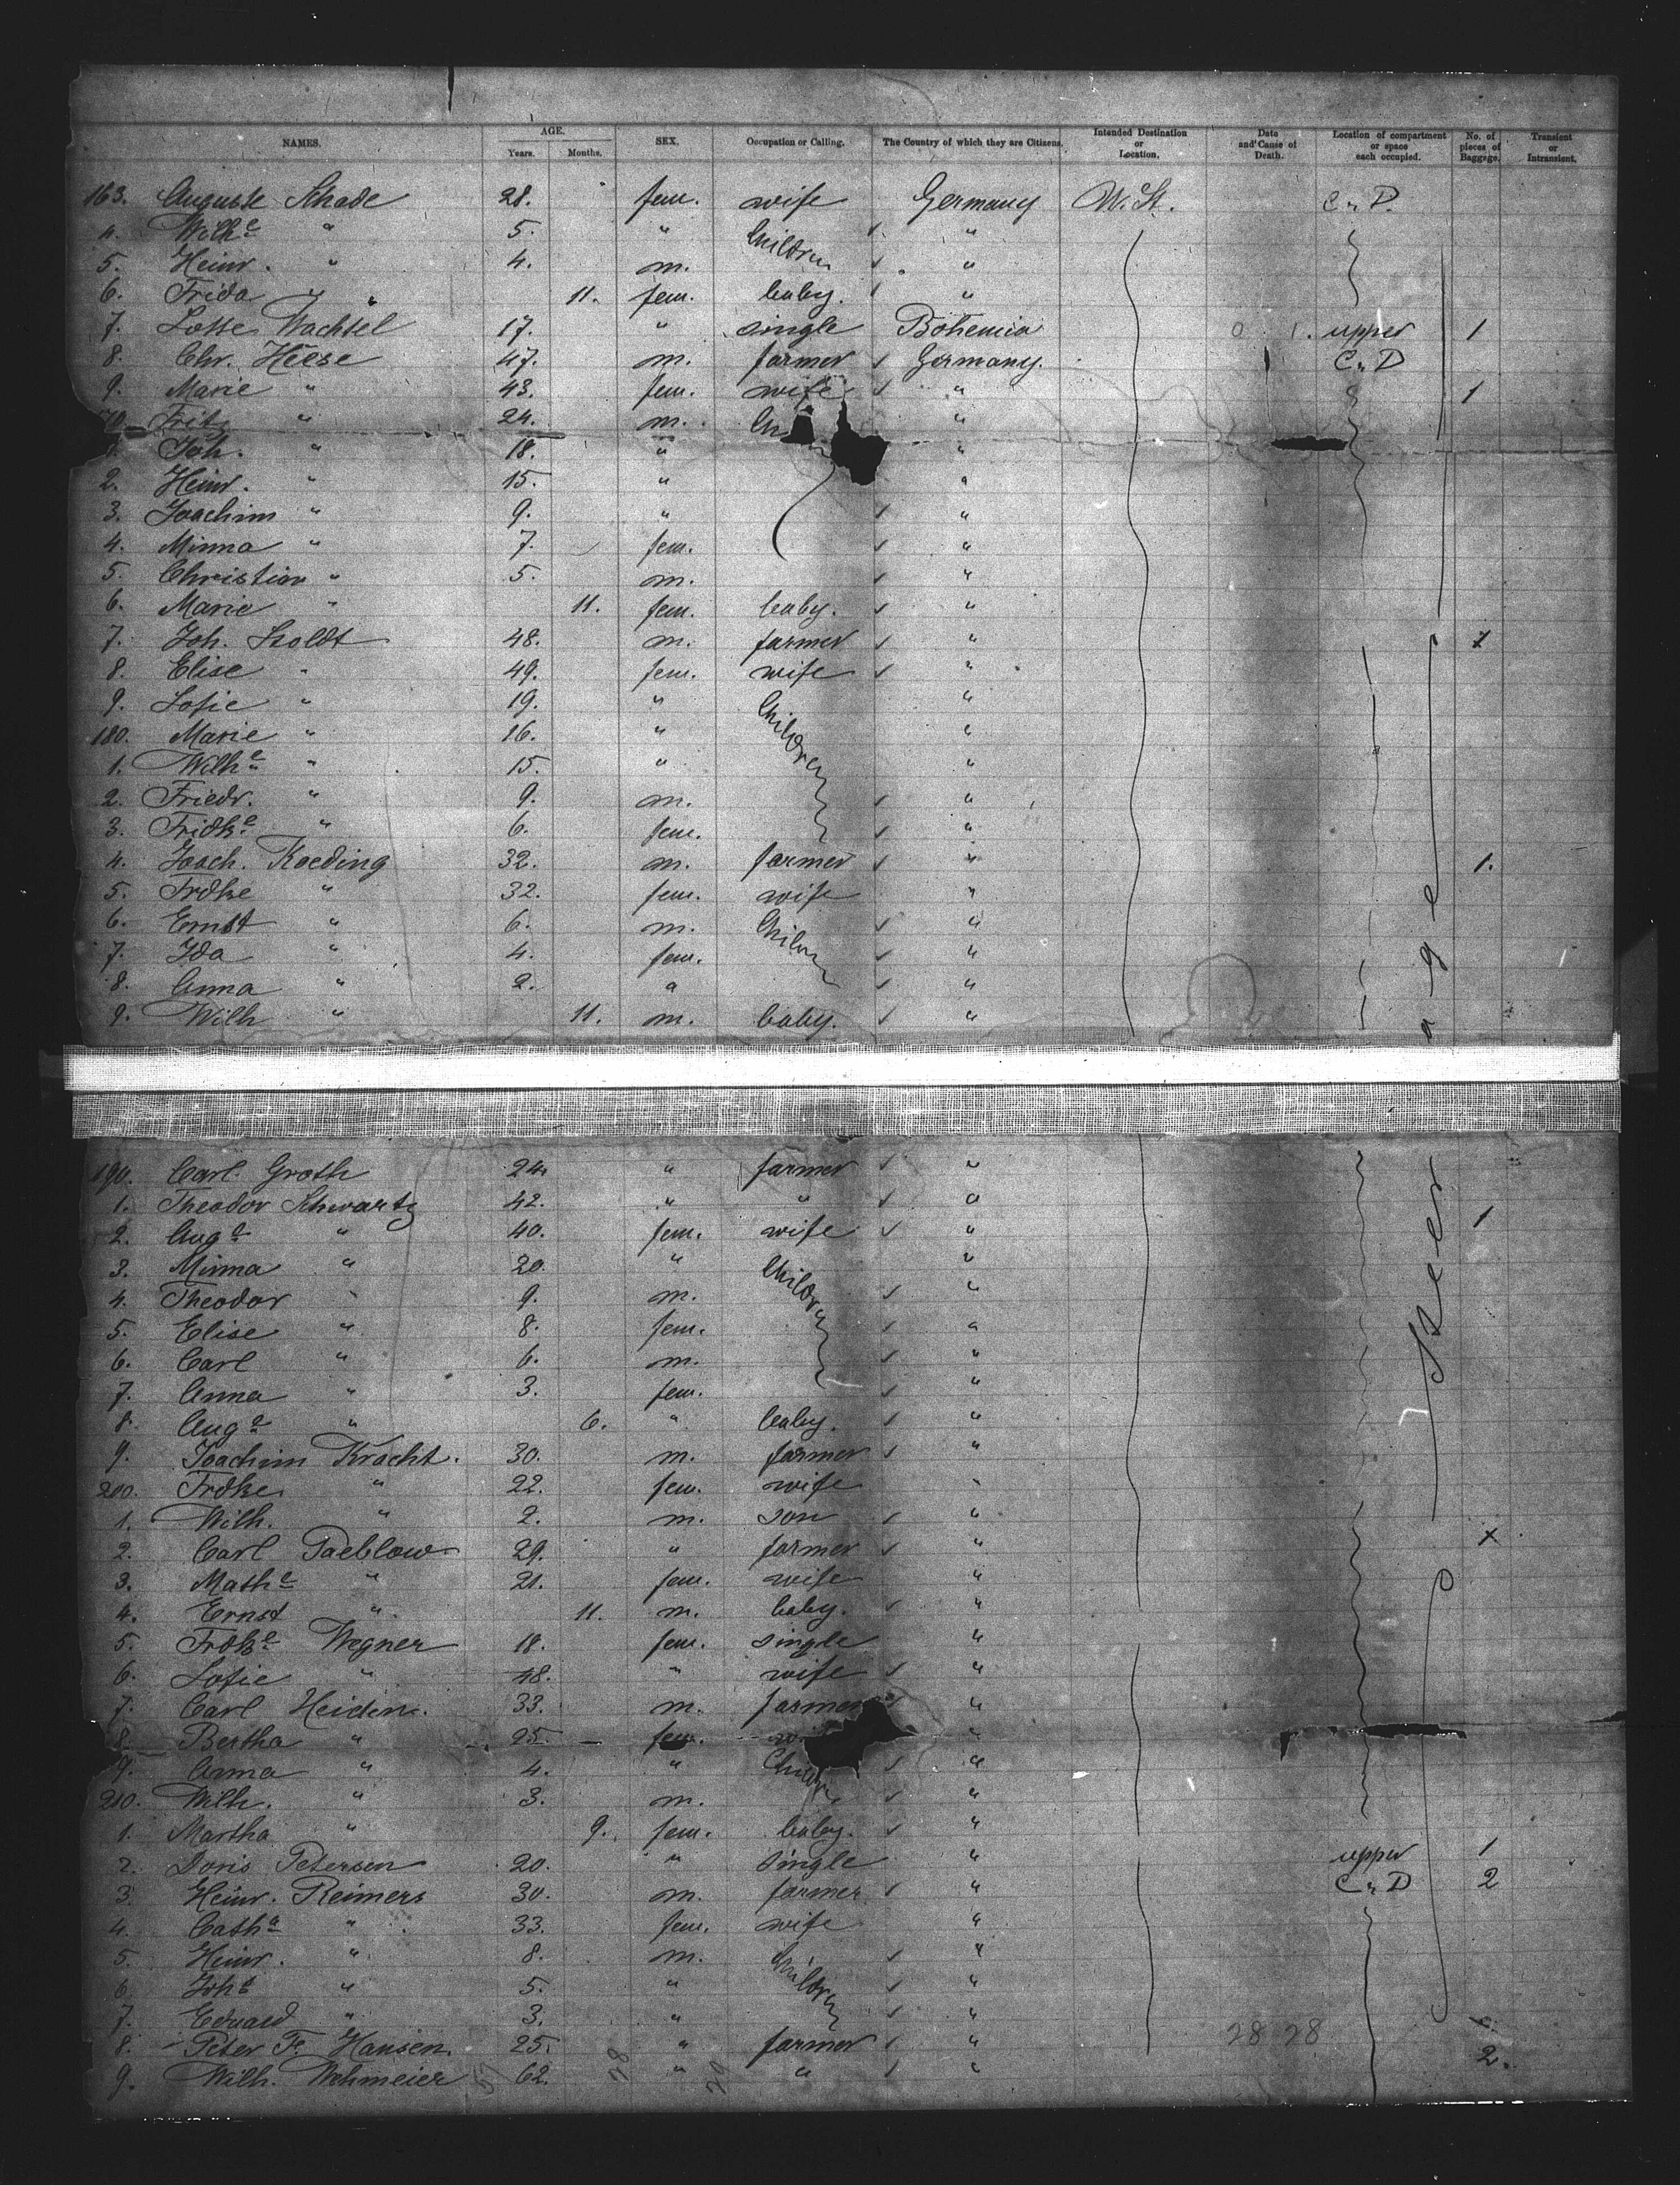 NAMES. AGE. Years. Months. SEX. Occupation or Calling. The Country of which they are Citizens. Intended Destination or Location. Date and Cause of Death. Location of compartment or space each occupied. No. of pieces of Baggage. Transient or Intransient.
163. Auguste Schade 28. fem. wife Germany W. St. C & D.
4. Wilhe " 5. " Children "
5. Heinr. " 4. m. "
6. Frida " 11. fem. baby. "
7. Lotte Wachtel 17. " single Bohemia upper 1
8. Chr. Heese 47. m. farmer Germany. C & D
9. Marie " 43. fem. wife " 1
70. Fritz " 24. m. "
1. Joh. " 18. " "
2. Heinr. " 15. " "
3. Joachim " 9. " "
4. Minna " 7. fem. "
5. Christian " 5. m. "
6. Marie " 11. fem. baby. "
7. Joh. Stoldt 48. m. farmer "
8. Elise " 49. fem. wife "
9. Sofie " 19. " Children "
180. Marie " 16. " "
1. Wilhe " 15. " "
2. Friedr. " 9. m. "
3. Fridke " 6. fem. "
4. Joach. Koeding 32. m. farmer " 1.
5. Frdke " 32. fem. wife "
6. Ernst " 6. m. Children "
7. Ida " 4. fem. "
8. Anna " 2. " "
9. Wilh " 11. m. baby. "
190. Carl Groth 24. " farmer "
1. Theodor Schwartz 42. " " "
2. Auge " 40. fem. wife " 1
3. Minna " 20. " Children "
4. Theodor " 9. m. "
5. Elise " 8. fem. "
6. Carl " 6. m. "
7. Anna " 3. fem. "
8. Auge " 6. " baby. "
9. Joachim Kracht. 30. m. farmer "
200. Frdke " 22. fem. wife "
1. Wilh. " 2. m. son "
2. Carl Paeblow 29. " farmer " x
3. Mathe " 21. fem. wife "
4. Ernst " 11. m. baby. "
5. Frdke Wegner 18. fem. single "
6. Sofie " 48. " wife "
7. Carl Heiden. 33. m. farmer "
8. Bertha " 25. fem. "
9. Anna " 4. " "
210. Wilh. " 3. m. "
1. Martha " 9. fem. baby. "
2. Doris Petersen 20. " single " upper 1
3. Heinr. Reimers 30. m. farmer " C & D 2
4. Catha " 33. fem. wife "
5. Heinr. " 8. m. Children "
6. Johs " 5. " "
7. Eduard " 3. " "
8. Peter F. Hansen. 25. " farmer " 28 28 2.
9. Wilh. Wehmeier 62. " " "
Steerage